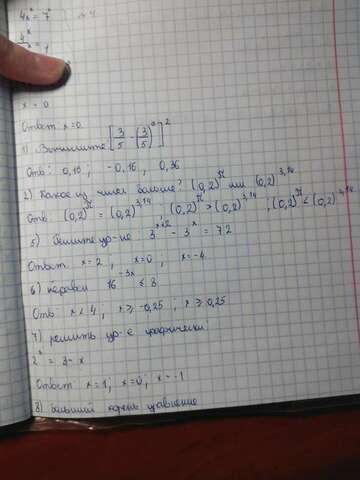 4x = 7ˣ №4
4ˣ = 1
x = 0
Ответ x=0
1) Вычислите [3/5 - (3/5)⁰]²
Отв: 0,16, -0,16, 0,36
2) Какое из чисел больше? (0,2)^π или (0,2)^3,14
Отв (0,2)^π = (0,2)^3,14; (0,2)^π > (0,2)^3,14; (0,2)^π < (0,2)^3,14
5) Решите ур-ие: 3^(x+2) - 3^x = 72
Ответ x=2, x=0, x=-4
6) неравен 16^(-3x) ≤ 8
Отв: x < 4, x ≥ -0,25; x ≥ 0,25
7) решить ур-е графически
2ˣ = 3-x
Ответ x=1, x=0; x=-1
8) больший корень уравнение